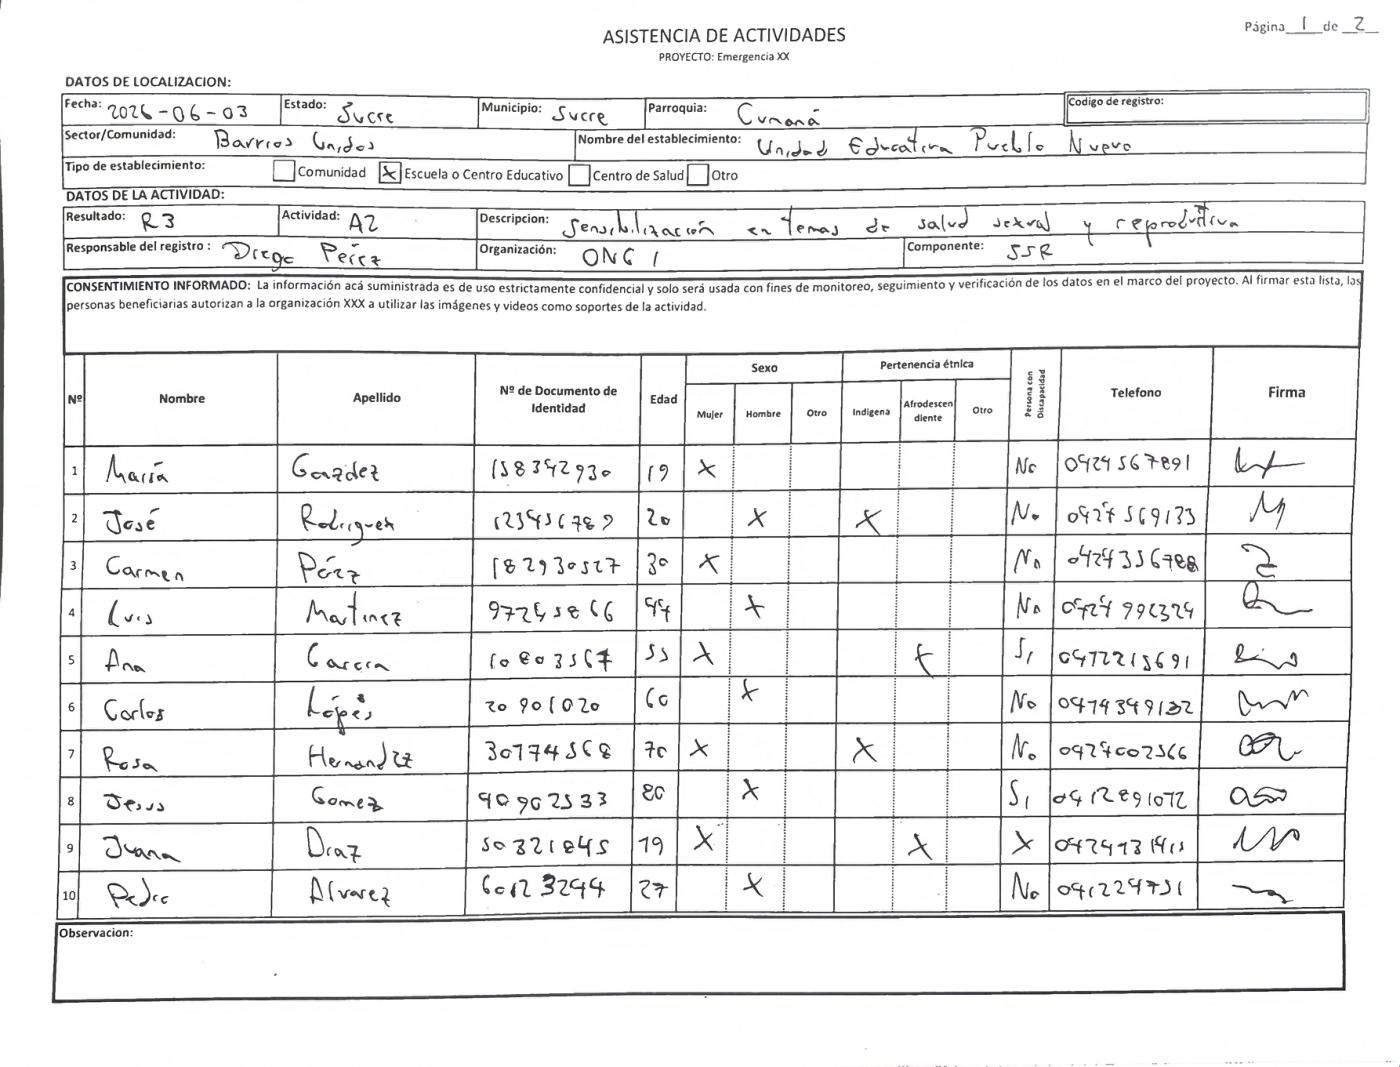 Página 1 de 2
ASISTENCIA DE ACTIVIDADES
PROYECTO: Emergencia XX
DATOS DE LOCALIZACION:
Fecha: 2026-06-03 Estado: Sucre Municipio: Sucre Parroquia: Cumaná Codigo de registro:
Sector/Comunidad: Barrios Unidos Nombre del establecimiento: Unidad Educativa Pueblo Nuevo
Tipo de establecimiento: Comunidad X Escuela o Centro Educativo Centro de Salud Otro
DATOS DE LA ACTIVIDAD:
Resultado: R3 Actividad: A2 Descripcion: Sensibilización en temas de salud sexual y reproductiva
Responsable del registro : Diego Pérez Organización: ONG 1 Componente: SSR
CONSENTIMIENTO INFORMADO: La información acá suministrada es de uso estrictamente confidencial y solo será usada con fines de monitoreo, seguimiento y verificación de los datos en el marco del proyecto. Al firmar esta lista, las
personas beneficiarias autorizan a la organización XXX a utilizar las imágenes y videos como soportes de la actividad.
Nº Nombre Apellido Nº de Documento de Identidad Edad Sexo Pertenencia étnica Persona con Discapacidad Telefono Firma
Mujer Hombre Otro Indigena Afrodescendiente Otro
1 María 158342930 19 X No 0424567891
2 José Rodriguez 123456789 20 X X No 0427569133
3 Carmen Pérz 182930527 30 X No 0424356788
4 Luis Martinez 97245866 44 X No 0424996324
5 Ana Garcia 10803567 55 X X Si 04122215691
6 Carlos Lópes 20901020 60 X No 0414349132
7 Rosa Hernandez 30774568 70 X X No 0424002566
8 Jesus Gomez 40902533 80 X Si 0412891072
9 Juana Diaz 50321845 19 X X X
10 Pedro Alvarez 60123244 27 X No 041224731
Observacion: